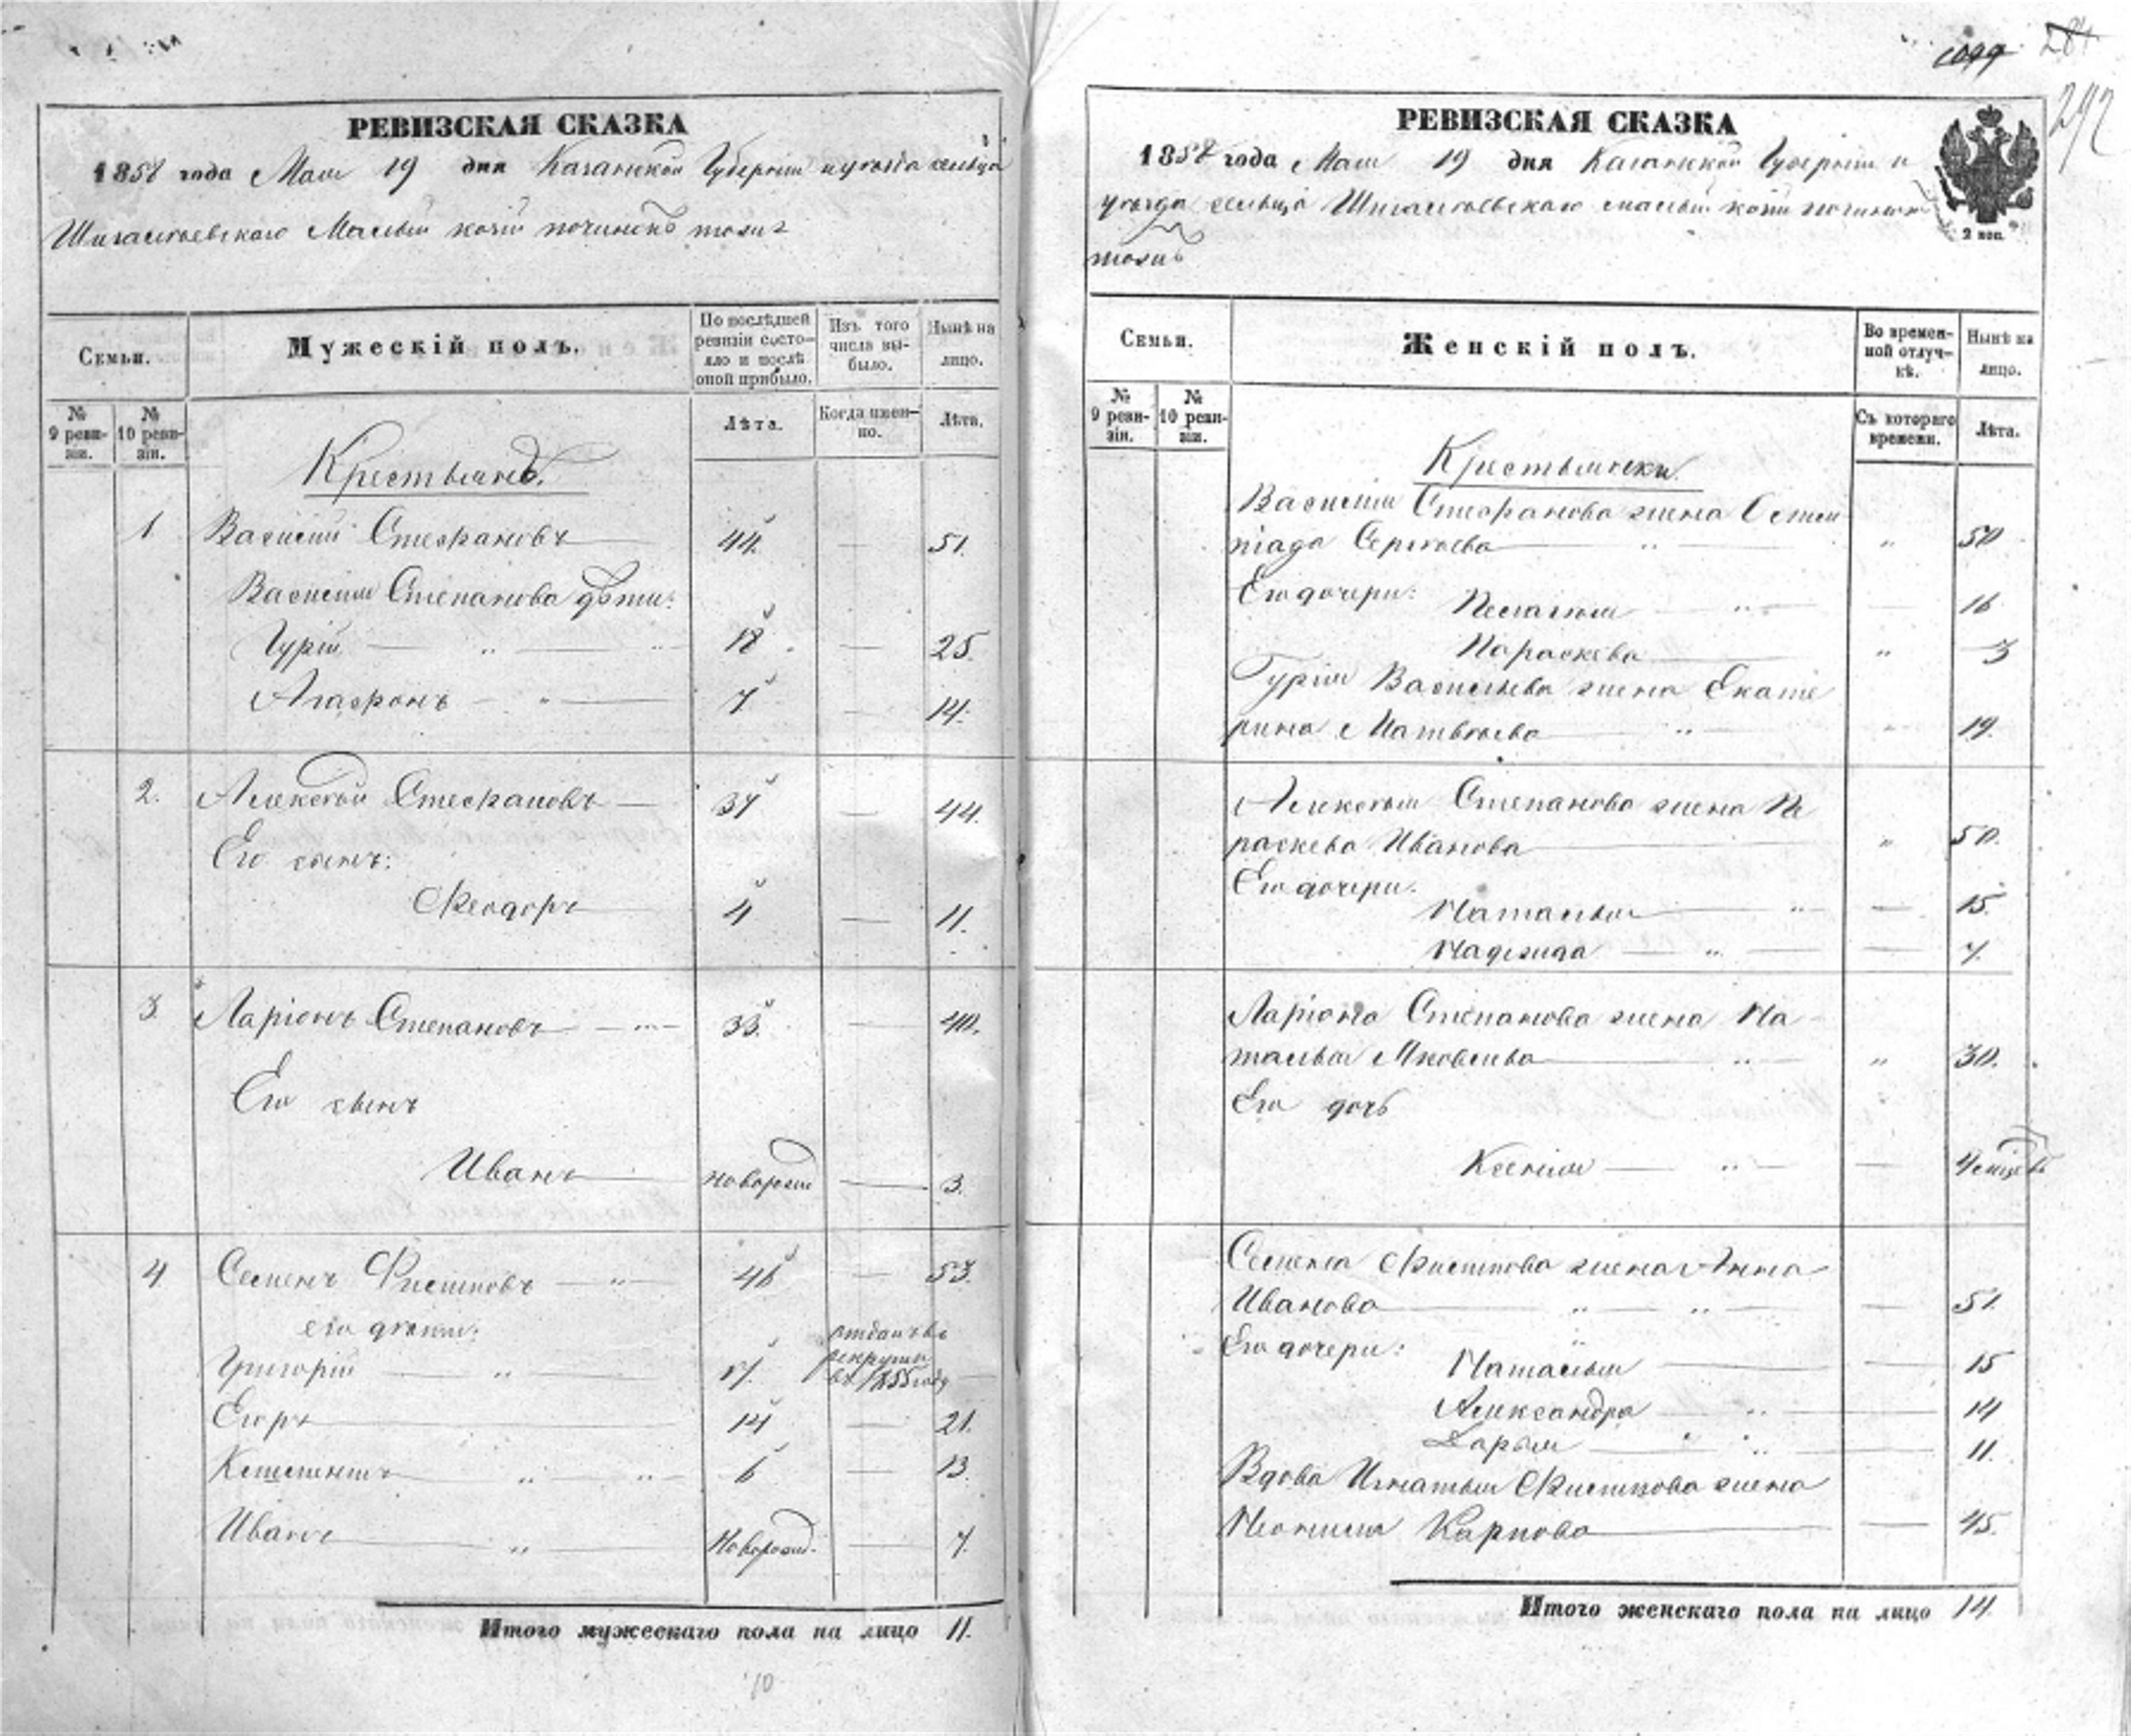 РЕВИЗСКАЯ СКАЗКА
1858 года Мая 19 дня Казанской Губернiи и уѣзда сельца
Малый починокъ тожъ
Семьи.
Мужескiй полъ.
По послѣдней ревизiи состояло и послѣ оной прибыло.
Изъ того числа выбыло.
Нынѣ на лицо.
№ 9 реви-зiи.
№ 10 реви-зiи.
Лѣта.
Когда имен-но.
Лѣта.
Крестьянъ.
1 Василiй Стефановъ 44. — 51.
Василiя Степанова дѣти:
Гурiй — „ „ 18. — 25.
Агафонъ — „ — 7 — 14.
2. Алексѣй Стефановъ — 37 — 44.
Его сынъ:
Феодоръ 4 — 11.
3. Ларiонъ Степановъ — „ — 33. — 40.
Его сынъ
Иванъ новорожд — 3.
4 Семенъ Филиповъ — „ 46 — 53.
его дѣти:
Григорiй — „ 17. отданъ въ рекруты въ 1855 году —
Егоръ 14 — 21.
Климентъ „ „ 6 — 13.
Иванъ „ Новорожд. — 7.
Итого мужескаго пола на лицо 11.
10
284
292
РЕВИЗСКАЯ СКАЗКА
1858 года Мая 19 дня Казанской Губернiи и
уѣзда сельца малый починокъ
тожъ
2 коп.
Семьи.
Женскiй полъ.
Во времен-ной отлуч-кѣ.
Нынѣ на лицо.
№ 9 реви-зiи.
№ 10 реви-зiи.
Съ котораго времени.
Лѣта.
Крестьянки.
Василiя Стефанова жена
Сергѣева „ „ 50
Его дочери: Пелагея „ — 16
Параскева „ 3
Гурiя Васильева жена Екате
рина Матвѣева „ „ 19.
Алексѣя Степанова жена Па
раскева Иванова „ 50.
Его дочери:
Наталья „ — 15
Надежда — „ — 7.
Ларiона Степанова жена На
талья Яковлева „ „ 30.
Его дочь
Ксенiя — „ — 4 мѣсяцъ
Семена Филипова жена Анна
Иванова „ „ — 51.
Его дочери: Наталья — 15
Александра „ — 14
Дарья „ — 11.
Вдова Игнатья Филипова жена
Карпова — 45.
Итого женскаго пола на лицо 14.